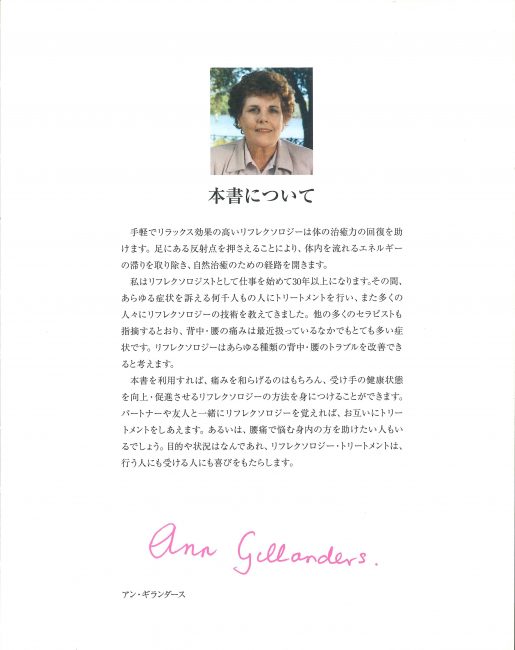 本書について
手軽でリラックス効果の高いリフレクソロジーは体の治癒力の回復を助
けます。足にある反射点を押さえることにより、体内を流れるエネルギー
の滞りを取り除き、自然治癒のための経路を開きます。
私はリフレクソロジストとして仕事を始めて30年以上になります。その間、
あらゆる症状を訴える何千人もの人にトリートメントを行い、また多くの
人々にリフレクソロジーの技術を教えてきました。他の多くのセラピストも
指摘するとおり、背中・腰の痛みは最近扱っているなかでもとても多い症
状です。リフレクソロジーはあらゆる種類の背中・腰のトラブルを改善でき
ると考えます。
本書を利用すれば、痛みを和らげるのはもちろん、受け手の健康状態
を向上・促進させるリフレクソロジーの方法を身につけることができます。
パートナーや友人と一緒にリフレクソロジーを覚えれば、お互いにトリー
トメントをしあえます。あるいは、腰痛で悩む身内の方を助けたい人もい
るでしょう。目的や状況はなんであれ、リフレクソロジー・トリートメントは、
行う人にも受ける人にも喜びをもたらします。
Ann Gillanders.
アン・ギランダース